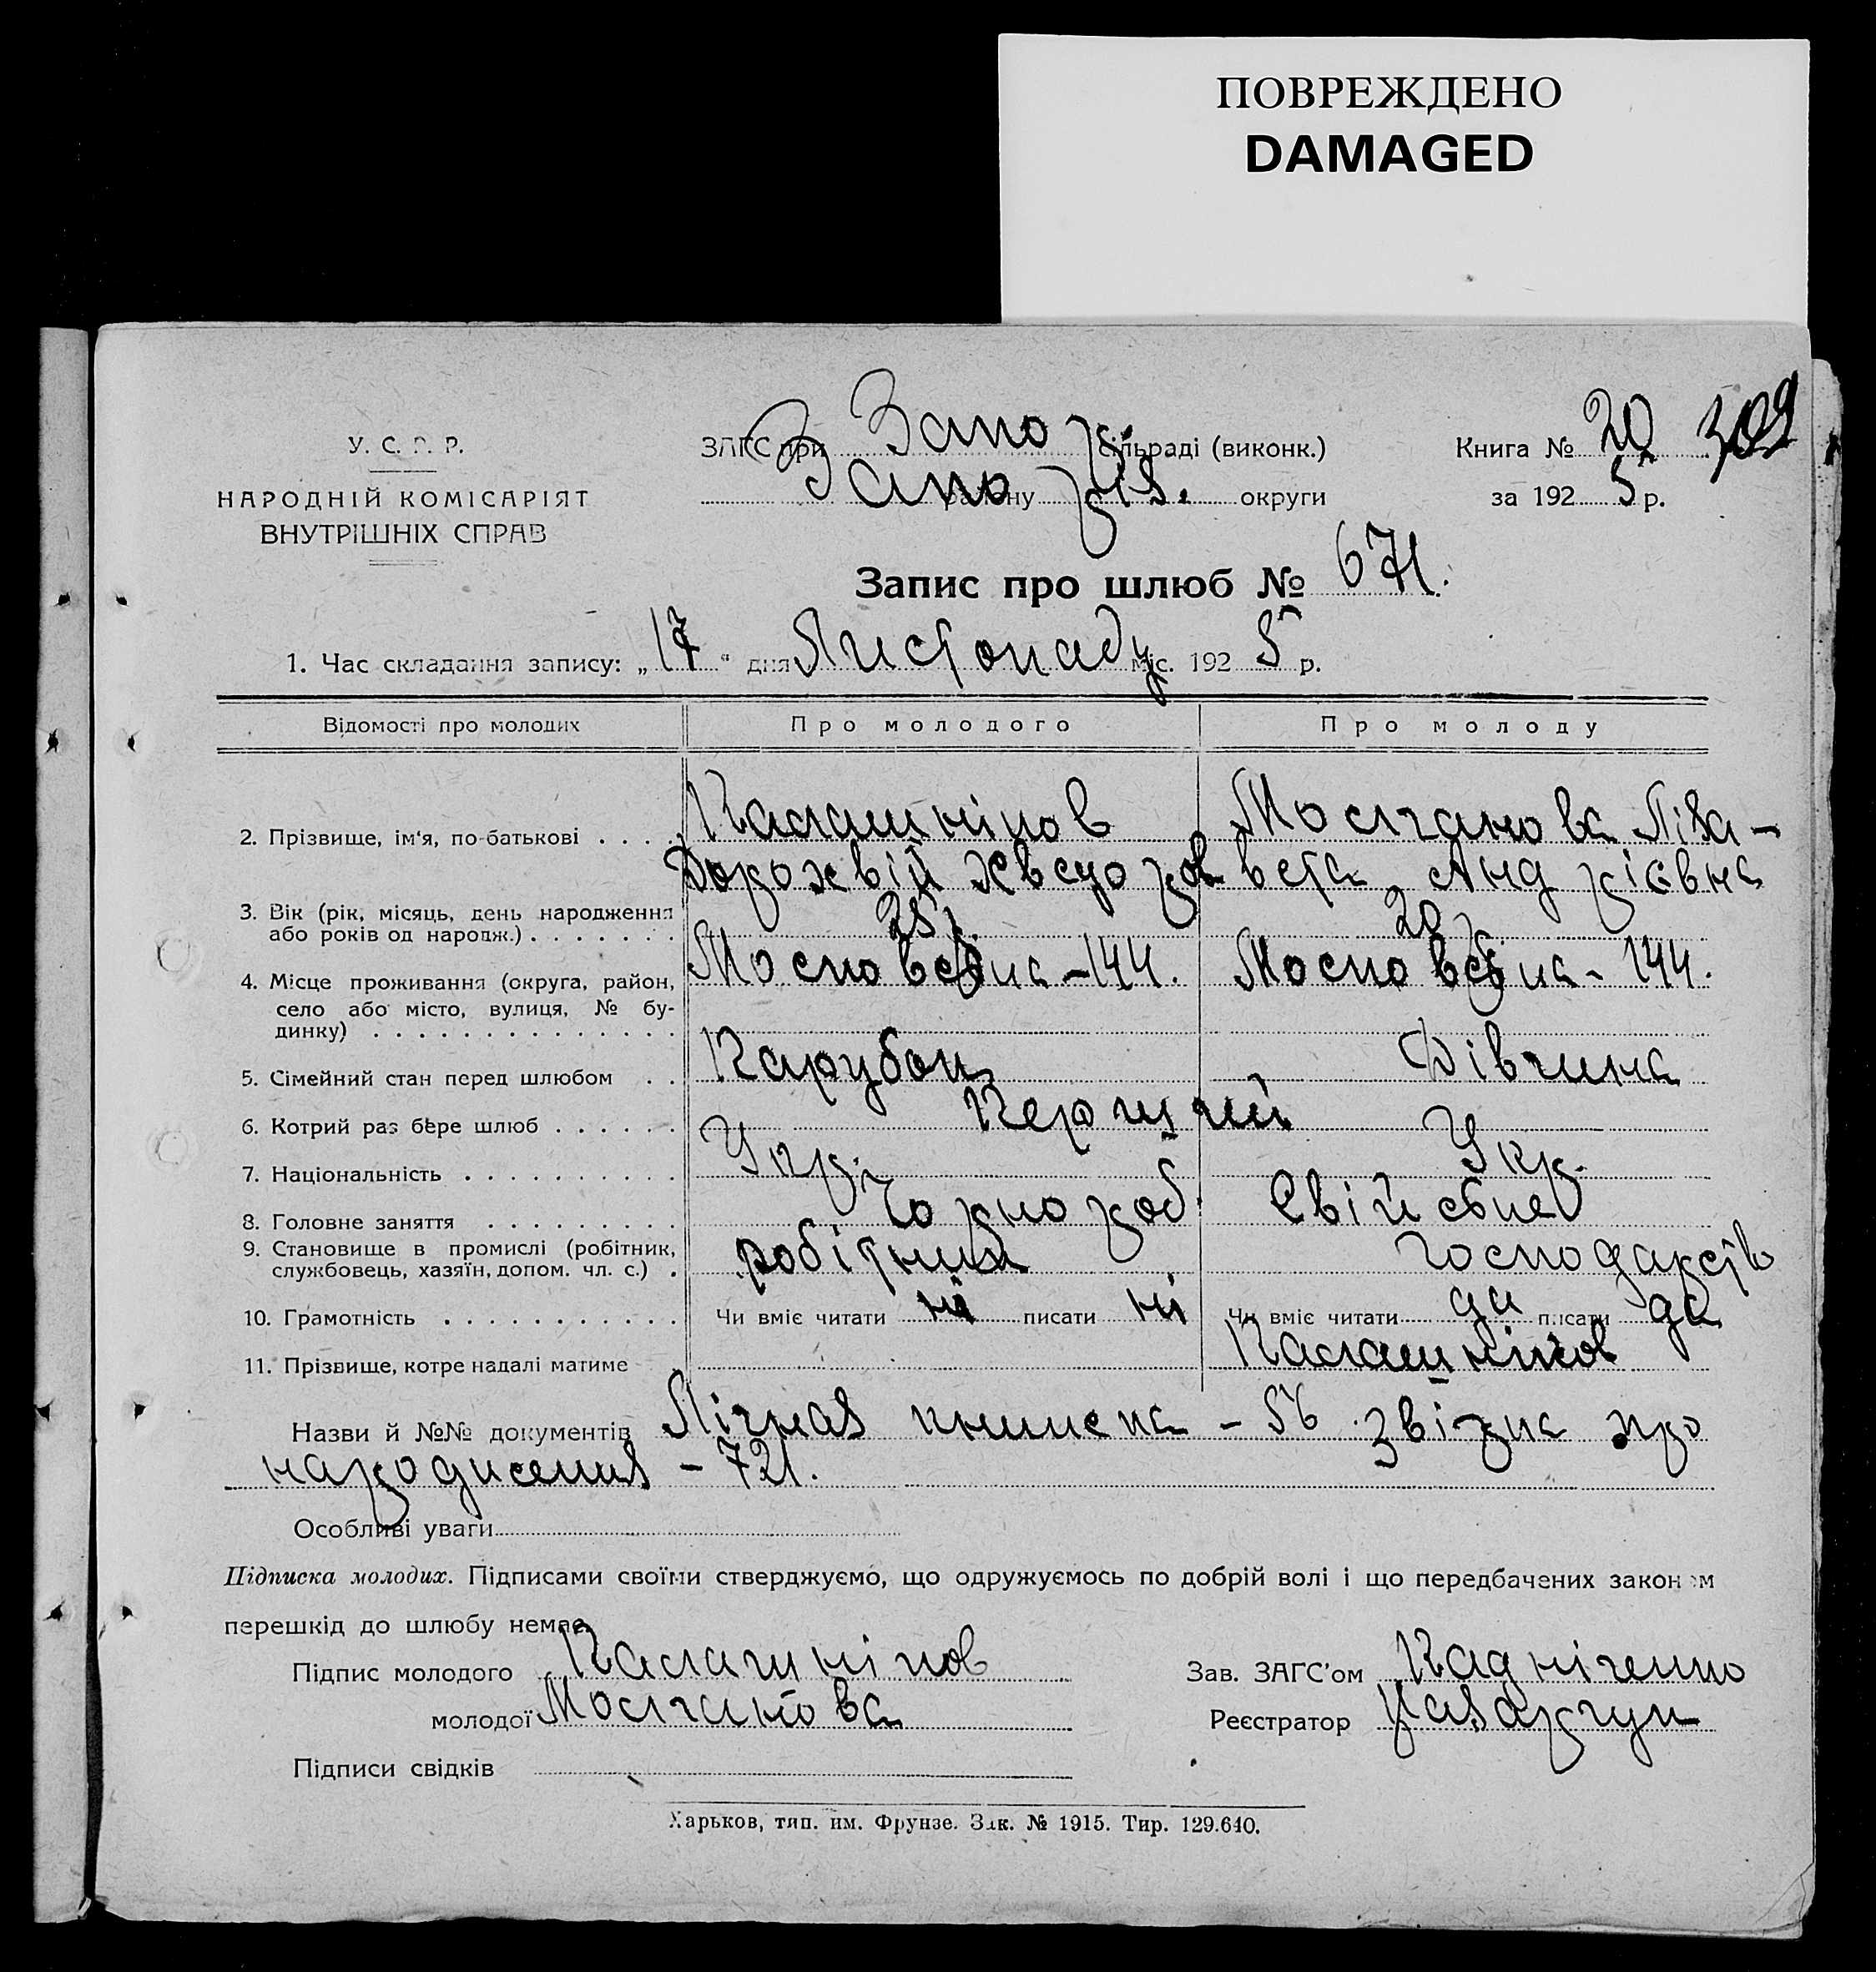 ПОВРЕЖДЕНО
DAMAGED
У. С. Р. Р.
НАРОДНІЙ КОМІСАРІЯТ
ВНУТРІШНІХ СПРАВ
ЗАГС при Запор. сільраді (виконк.)
Запо району різ. округи
Книга № 20 309
за 1925 р.
Запис про шлюб № 671.
1. Час складання запису: „17“ дня Листопаду міс. 1925 р.
Відомості про молодих Про молодого Про молоду
2. Прізвище, ім'я, по-батькові . . . . Калашніков Молчанова Ліза-
Дорохвій Хведоров вета Андріівна
3. Вік (рік, місяць, день народження 25 р. 20 р.
або років од народж.) . . . . . . .
4. Місце проживання (округа, район, Московська-144. Московська-144.
село або місто, вулиця, № бу-
динку) . . . . . . . . . . . . . .
5. Сімейний стан перед шлюбом . . Парубок Дівчина
6. Котрий раз бере шлюб . . . . . . Перший
7. Національність . . . . . . . . . . Укр. Укр.
8. Головне заняття . . . . . . . . . Чорнороб. Свійське
9. Становище в промислі (робітник, робітник господарство
службовець, хазяїн, допом. чл. с.) .
10. Грамотність . . . . . . . . . . . Чи вміє читати ні писати ні Чи вміє читати да писати да
11. Прізвище, котре надалі матиме Калашніков
Назви й №№ документів Лічная книжка - 56 звізка про
народження - 721.
Особливі уваги
Підписка молодих. Підписами своїми стверджуємо, що одружуємось по добрій волі і що передбачених законом
перешкід до шлюбу немає.
Підпис молодого Калашніков Зав. ЗАГС'ом Кадніченко
молодої Молчанова Реєстратор
Підписи свідків
Харьков, тип. им. Фрунзе. Зак. № 1915. Тир. 129.640.